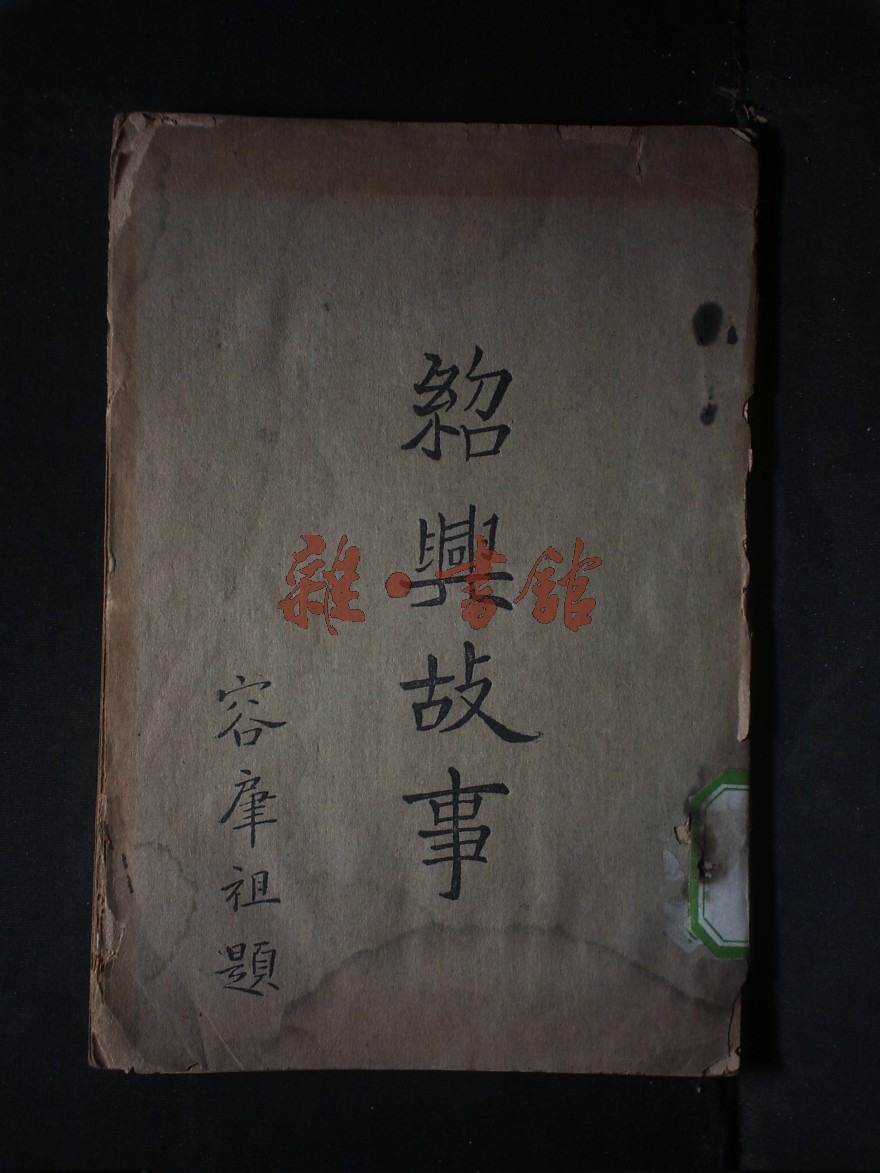 紹興故事
容肇祖題
雜·書館